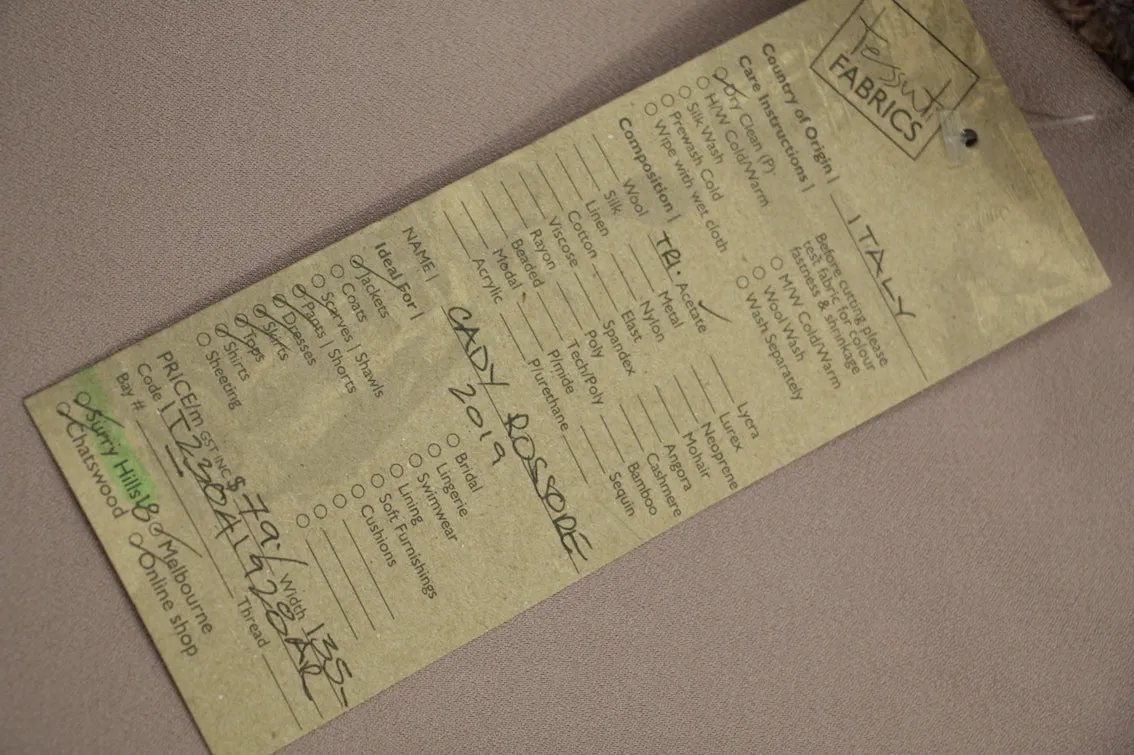 tessuti
FABRICS
Country of Origin | ITALY
Care Instructions |
Before cutting please
test fabric for colour
fastness & shrinkage
Dry Clean (P)
H/W Cold/Warm
Silk Wash
Prewash Cold
Wipe with wet cloth
M/W Cold/Warm
Wool Wash
Wash Separately
Composition | TRI.
Wool
Silk
Linen
Cotton
Viscose
Rayon
Beaded
Modal
Acrylic
Acetate
Metal
Nylon
Elast
Spandex
Poly
Tech/Poly
P/mide
P/urethane
Lycra
Lurex
Neoprene
Mohair
Angora
Cashmere
Bamboo
Sequin
NAME | CADY ROSSORE
2019
Ideal For |
Jackets
Coats
Scarves | Shawls
Pants | Shorts
Dresses
Skirts
Tops
Shirts
Sheeting
Bridal
Lingerie
Swimwear
Lining
Soft Furnishings
Cushions
PRICE/m GST INC $79./ Width 135-
Code
Bay # Thread
Surry Hills 18 Melbourne
Chatswood Online shop